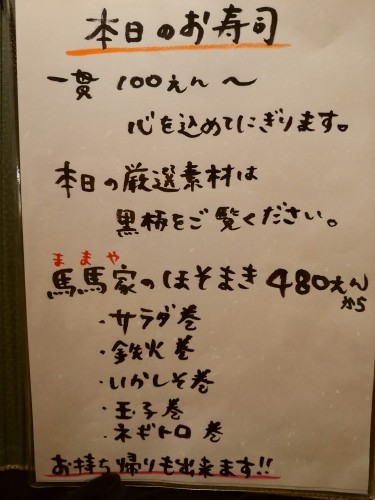 本日のお寿司
一貫 100えん〜
心を込めてにぎります。
本日の厳選素材は
黒柿をご覧ください。
ままや
馬馬家のほそまき 480えん
から
・サラダ巻
・鉄火巻
・いかしそ巻
・玉子巻
・ネギトロ巻
お持ち帰りも出来ます!!